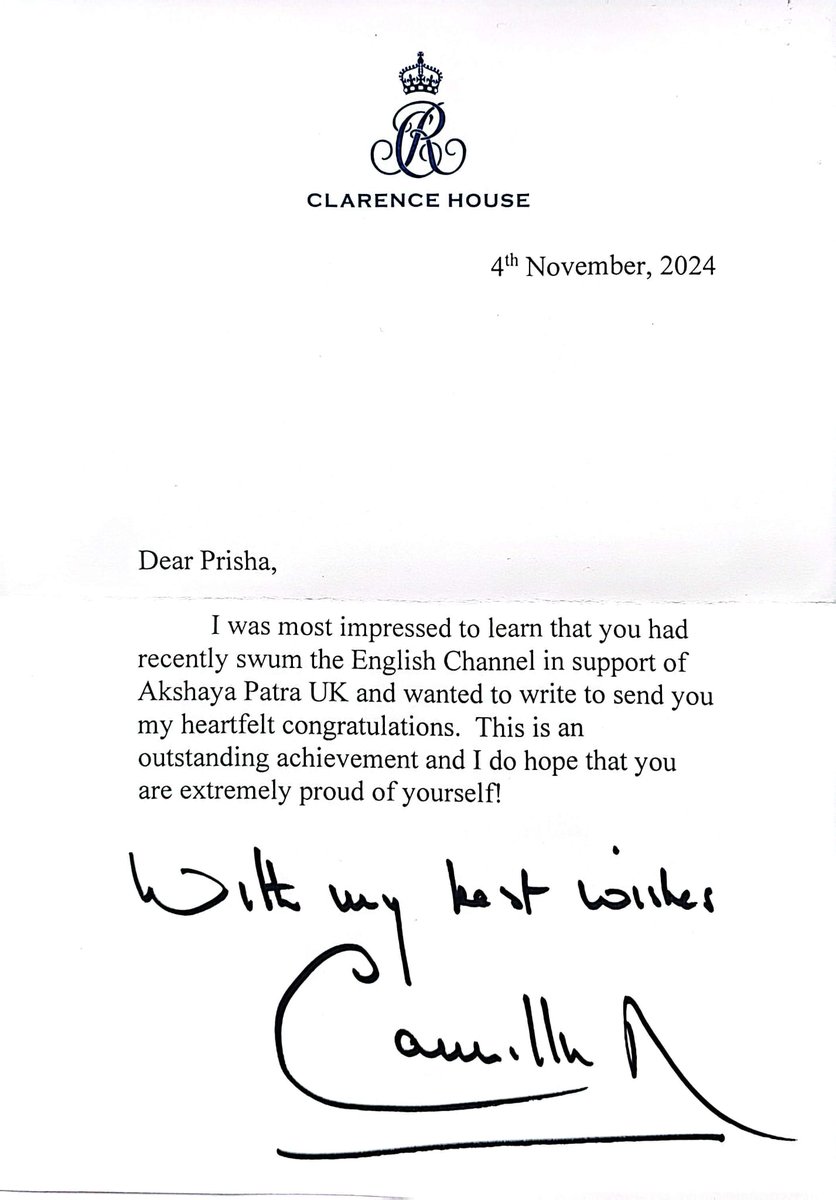 CR
CLARENCE HOUSE
4th November, 2024
Dear Prisha,
I was most impressed to learn that you had
recently swum the English Channel in support of
Akshaya Patra UK and wanted to write to send you
my heartfelt congratulations. This is an
outstanding achievement and I do hope that you
are extremely proud of yourself!
With my best wishes
Camilla R